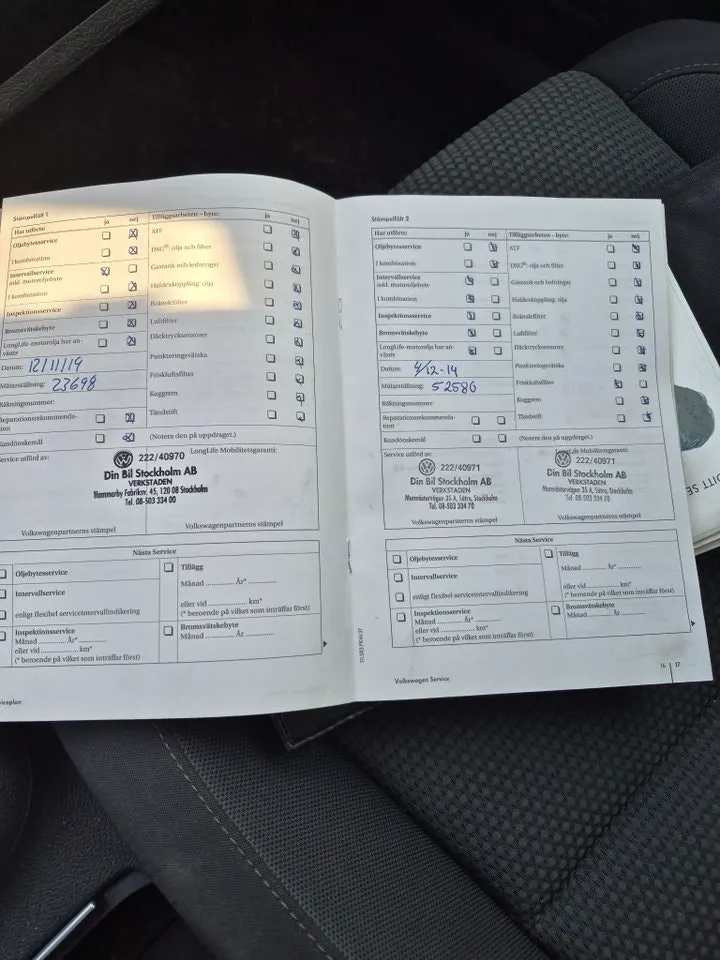 Stämpelfält 1
Har utförts: ja nej
Oljebytesservice
I kombination
Intervallservice
inkl. motoroljebyte
I kombination
Inspektionsservice
Bromsvätskebyte
LongLife-motorolja har an-
vänts
Datum: 12/11/19
Mätarställning: 23698
Räkningsnummer:
Reparationsrekommenda-
tion
Kundönskemål
(Notera den på uppdraget.)
Tilläggsarbeten – byte: ja nej
ATF
DSG®: olja och filter
Gastank och ledningar
Haldexkoppling: olja
Bränslefilter
Luftfilter
Däcktryckssensorer
Punkteringsvätska
Friskluftsfilter
Kuggrem
Tändstift
Service utförd av:
LongLife Mobilitetsgaranti:
222/40970
Din Bil Stockholm AB
VERKSTADEN
Hammarby Fabriksv. 45, 120 08 Stockholm
Tel. 08-503 334 00
Volkswagenpartnerns stämpel
Volkswagenpartnerns stämpel
Nästa Service
Oljebytesservice
Intervallservice
enligt flexibel serviceintervallindikering
Inspektionsservice
Månad ............ År* ............
eller vid ............ km*
(* beroende på vilket som inträffar först)
Tillägg
Månad ............ År* ............
eller vid ............ km*
(* beroende på vilket som inträffar först)
Bromsvätskebyte
Månad ............ År ............
Stämpelfält 2
Har utförts: ja nej
Oljebytesservice
I kombination
Intervallservice
inkl. motoroljebyte
I kombination
Inspektionsservice
Bromsvätskebyte
LongLife-motorolja har an-
vänts
Datum: 4/12-14
Mätarställning: 52586
Räkningsnummer:
Reparationsrekommenda-
tion
Kundönskemål
(Notera den på uppdraget.)
Tilläggsarbeten – byte: ja nej
ATF
DSG®: olja och filter
Gastank och ledningar
Haldexkoppling: olja
Bränslefilter
Luftfilter
Däcktryckssensorer
Punkteringsvätska
Friskluftsfilter
Kuggrem
Tändstift
Service utförd av:
LongLife Mobilitetsgaranti:
222/40971
Din Bil Stockholm AB
VERKSTADEN
Tel. 08-503 334 70
Volkswagenpartnerns stämpel
222/40971
Din Bil Stockholm AB
VERKSTADEN
Tel. 08-503 334 70
Volkswagenpartnerns stämpel
Nästa Service
Oljebytesservice
Intervallservice
enligt flexibel serviceintervallindikering
Inspektionsservice
Månad ............ År* ............
eller vid ............ km*
(* beroende på vilket som inträffar först)
Tillägg
Månad ............ År* ............
eller vid ............ km*
(* beroende på vilket som inträffar först)
Bromsvätskebyte
Månad ............ År ............
Volkswagen Service
16 17